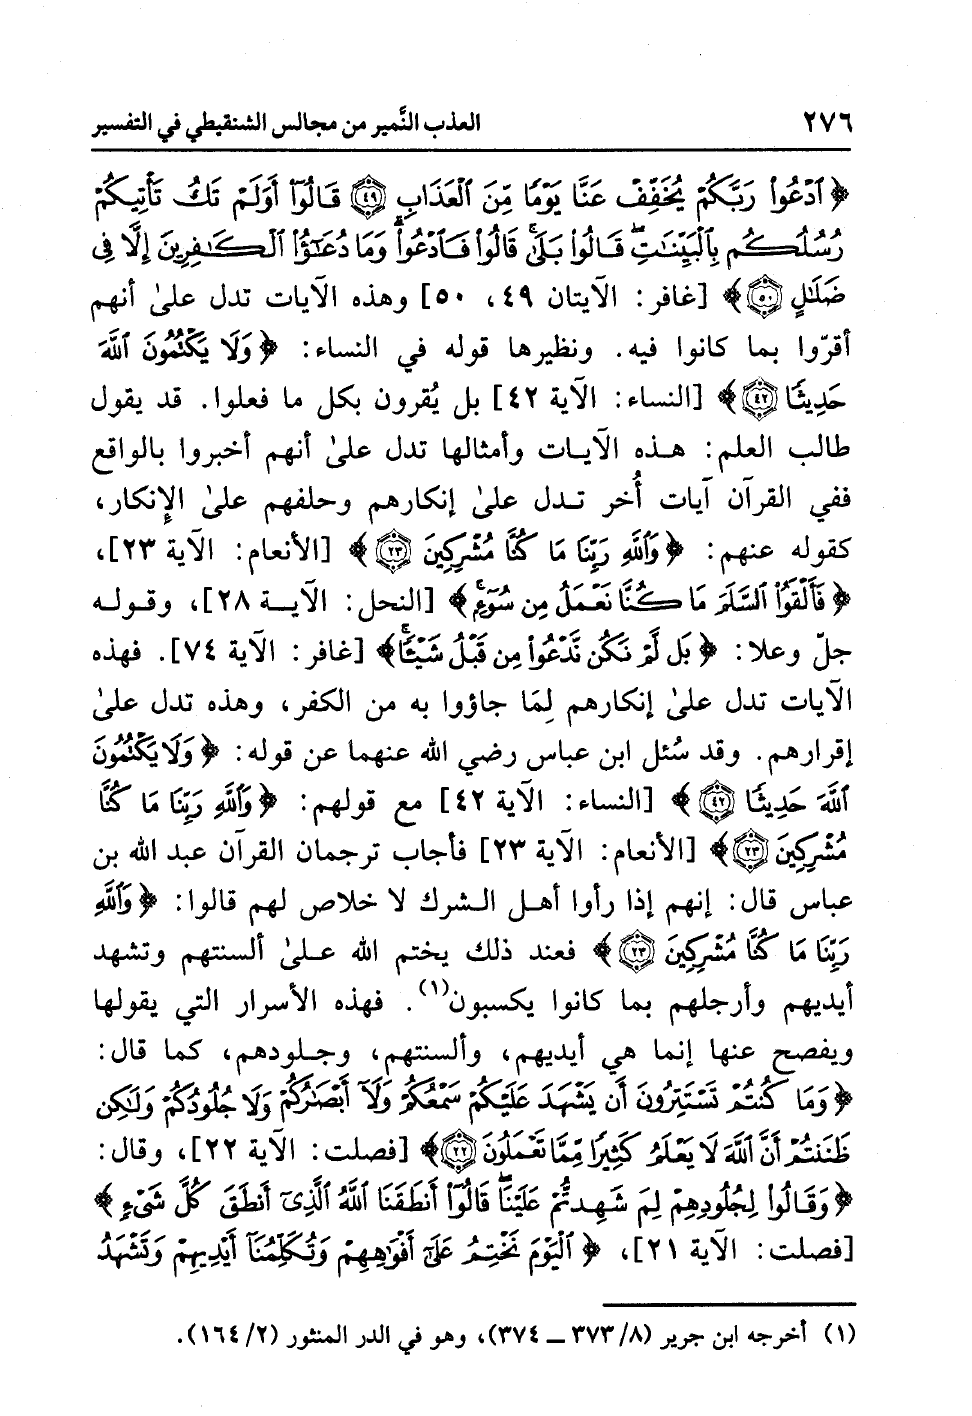 ٢٧٦ العذب النَّمير من مجالس الشنقيطي في التفسير
﴿ ٱدْعُوا۟ رَبَّكُمْ يُخَفِّفْ عَنَّا يَوْمًا مِّنَ ٱلْعَذَابِ ٤٩ قَالُوٓا۟ أَوَلَمْ تَكُ تَأْتِيكُمْ
رُسُلُكُم بِٱلْبَيِّنَـٰتِ ۖ قَالُوا۟ بَلَىٰ ۚ قَالُوا۟ فَٱدْعُوا۟ ۗ وَمَا دُعَـٰٓؤُا۟ ٱلْكَـٰفِرِينَ إِلَّا فِى
ضَلَـٰلٍ ٥٠ ﴾ [غافر: الآيتان ٤٩، ٥٠] وهذه الآيات تدل علىٰ أنهم
أقرّوا بما كانوا فيه. ونظيرها قوله في النساء: ﴿ وَلَا يَكْتُمُونَ ٱللَّهَ
حَدِيثًا ٤٢ ﴾ [النساء: الآية ٤٢] بل يُقرون بكل ما فعلوا. قد يقول
طالب العلم: هذه الآيات وأمثالها تدل علىٰ أنهم أخبروا بالواقع
ففي القرآن آيات أُخر تدل علىٰ إنكارهم وحلفهم علىٰ الإِنكار،
كقوله عنهم: ﴿ وَٱللَّهِ رَبِّنَا مَا كُنَّا مُشْرِكِينَ ٢٣ ﴾ [الأنعام: الآية ٢٣]،
﴿ فَأَلْقَوُا۟ ٱلسَّلَمَ مَا كُنَّا نَعْمَلُ مِن سُوٓءٍۭ ۚ ﴾ [النحل: الآية ٢٨]، وقوله
جلّ وعلا: ﴿ بَل لَّمْ نَكُن نَّدْعُوا۟ مِن قَبْلُ شَيْـًٔا ۚ ﴾ [غافر: الآية ٧٤]. فهذه
الآيات تدل علىٰ إنكارهم لِمَا جاؤوا به من الكفر، وهذه تدل علىٰ
إقرارهم. وقد سُئل ابن عباس رضي الله عنهما عن قوله: ﴿ وَلَا يَكْتُمُونَ
ٱللَّهَ حَدِيثًا ٤٢ ﴾ [النساء: الآية ٤٢] مع قولهم: ﴿ وَٱللَّهِ رَبِّنَا مَا كُنَّا
مُشْرِكِينَ ٢٣ ﴾ [الأنعام: الآية ٢٣] فأجاب ترجمان القرآن عبد الله بن
عباس قال: إنهم إذا رأوا أهل الشرك لا خلاص لهم قالوا: ﴿ وَٱللَّهِ
رَبِّنَا مَا كُنَّا مُشْرِكِينَ ٢٣ ﴾ فعند ذلك يختم الله علىٰ ألسنتهم وتشهد
أيديهم وأرجلهم بما كانوا يكسبون(١). فهذه الأسرار التي يقولها
ويفصح عنها إنما هي أيديهم، وألسنتهم، وجلودهم، كما قال:
﴿ وَمَا كُنتُمْ تَسْتَتِرُونَ أَن يَشْهَدَ عَلَيْكُمْ سَمْعُكُمْ وَلَآ أَبْصَـٰرُكُمْ وَلَا جُلُودُكُمْ وَلَـٰكِن
ظَنَنتُمْ أَنَّ ٱللَّهَ لَا يَعْلَمُ كَثِيرًا مِّمَّا تَعْمَلُونَ ٢٢ ﴾ [فصلت: الآية ٢٢]، وقال:
﴿ وَقَالُوا۟ لِجُلُودِهِمْ لِمَ شَهِدتُّمْ عَلَيْنَا ۖ قَالُوٓا۟ أَنطَقَنَا ٱللَّهُ ٱلَّذِىٓ أَنطَقَ كُلَّ شَىْءٍ ﴾
[فصلت: الآية ٢١]، ﴿ ٱلْيَوْمَ نَخْتِمُ عَلَىٰٓ أَفْوَٰهِهِمْ وَتُكَلِّمُنَآ أَيْدِيهِمْ وَتَشْهَدُ
(١) أخرجه ابن جرير (٨/ ٣٧٣ ــ ٣٧٤)، وهو في الدر المنثور (٢/ ١٦٤).